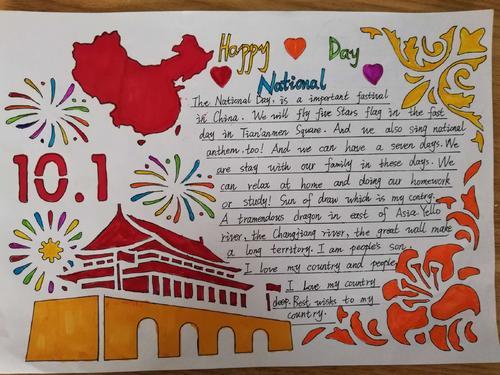 Happy Day
National
10.1
The National Day. is a important fastival
in China. We will fly five Stars flag in the fast
day in Tian'anmen Square. And we also sing national
anthem. too! And we can have a seven days. We
are stay with our family in these days. We
can relax at home and doing our homework
or study! Sun of draw which is my contry.
A tramendous dragon in east of Asia. Yello
river, the Changjiang river, the great wall make
a long territory. I am people's son.
I love my country and people
I love my country
deep. Best wishs to my
country.